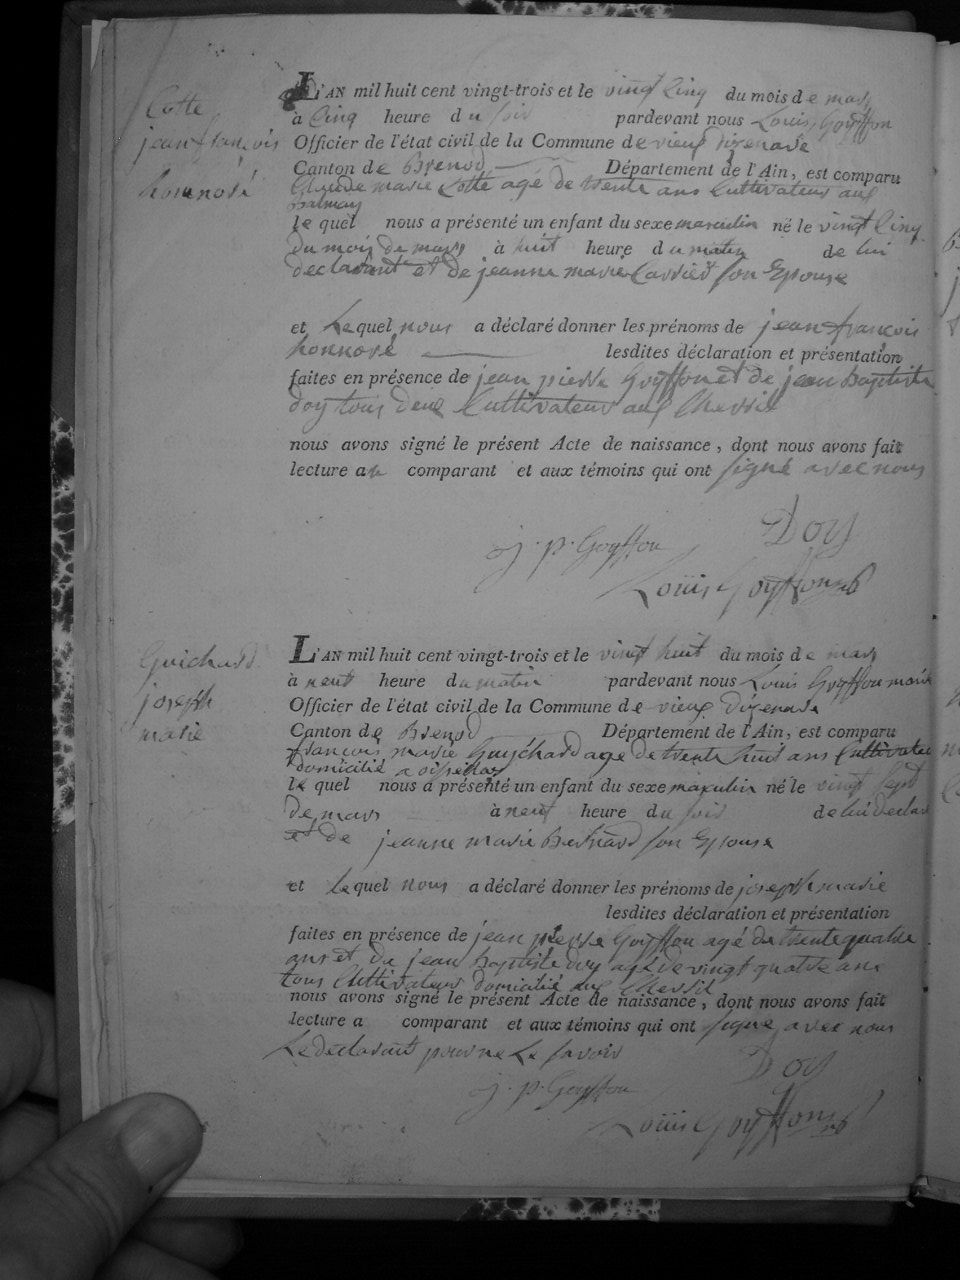 Cotte
jean françois
honnoré
L'AN mil huit cent vingt-trois et le vingt Cinq du mois de mars
à Cinq heure du soir pardevant nous Louis Goyffon
Officier de l'état civil de la Commune de vieux dizenave
Canton de Brenod Département de l'Ain, est comparu
Claude marie Cotte agé de trente ans Cultivateur aux
Balmay
le quel nous a présenté un enfant du sexe masculin né le vingt Cinq
du mois de mars à huit heure du matin de lui
declarant et de jeanne marie Carrier son Epouse
et Le quel nous a déclaré donner les prénoms de jean françois
honnoré lesdites déclaration et présentation
faites en présence de jean pierre Goyffon et de jean Baptiste
doy tous deux Cultivateurs aux Chevril
nous avons signé le présent Acte de naissance, dont nous avons fait
lecture au comparant et aux témoins qui ont signé avec nous
Doy
j. p. Goyffon
Louis Goyffon
Guichard
joseph
marie
L'AN mil huit cent vingt-trois et le vingt huit du mois de mars
à neuf heure du matin pardevant nous Louis Goyffon maire
Officier de l'état civil de la Commune de vieux dizenave
Canton de Brenod Département de l'Ain, est comparu
françois marie Guichard age de trente huit ans Cultivateur
domicilié a oissellaz
le quel nous a présenté un enfant du sexe masculin né le vingt Sept
de mars à neuf heure du soir de lui declar
et de jeanne marie Bernard son Epouse
et Le quel nous a déclaré donner les prénoms de joseph marie
lesdites déclaration et présentation
faites en présence de jean pierre Goyffon agé de trente quatre
ans et de jean Baptiste doy agé de vingt quatre ans
tous Cultivateurs domicilié aux Chevril
nous avons signé le présent Acte de naissance, dont nous avons fait
lecture a comparant et aux témoins qui ont signé avec nous
Le declarant pour ne Le savoir
Doy
j. p. Goyffon
Louis Goyffon